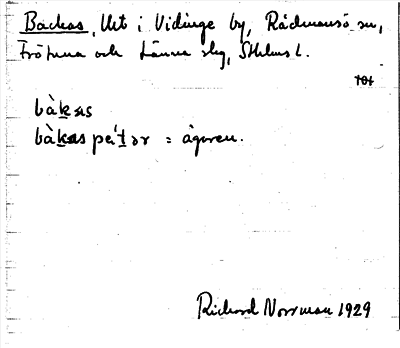 Backas, Utt i Vidinge by, Rådmansö sn,
Frötuna och Länna skg, Sthlms l.
101
bàkas
bàkas pe'tər = ägaren.
Richard Norrman 1929